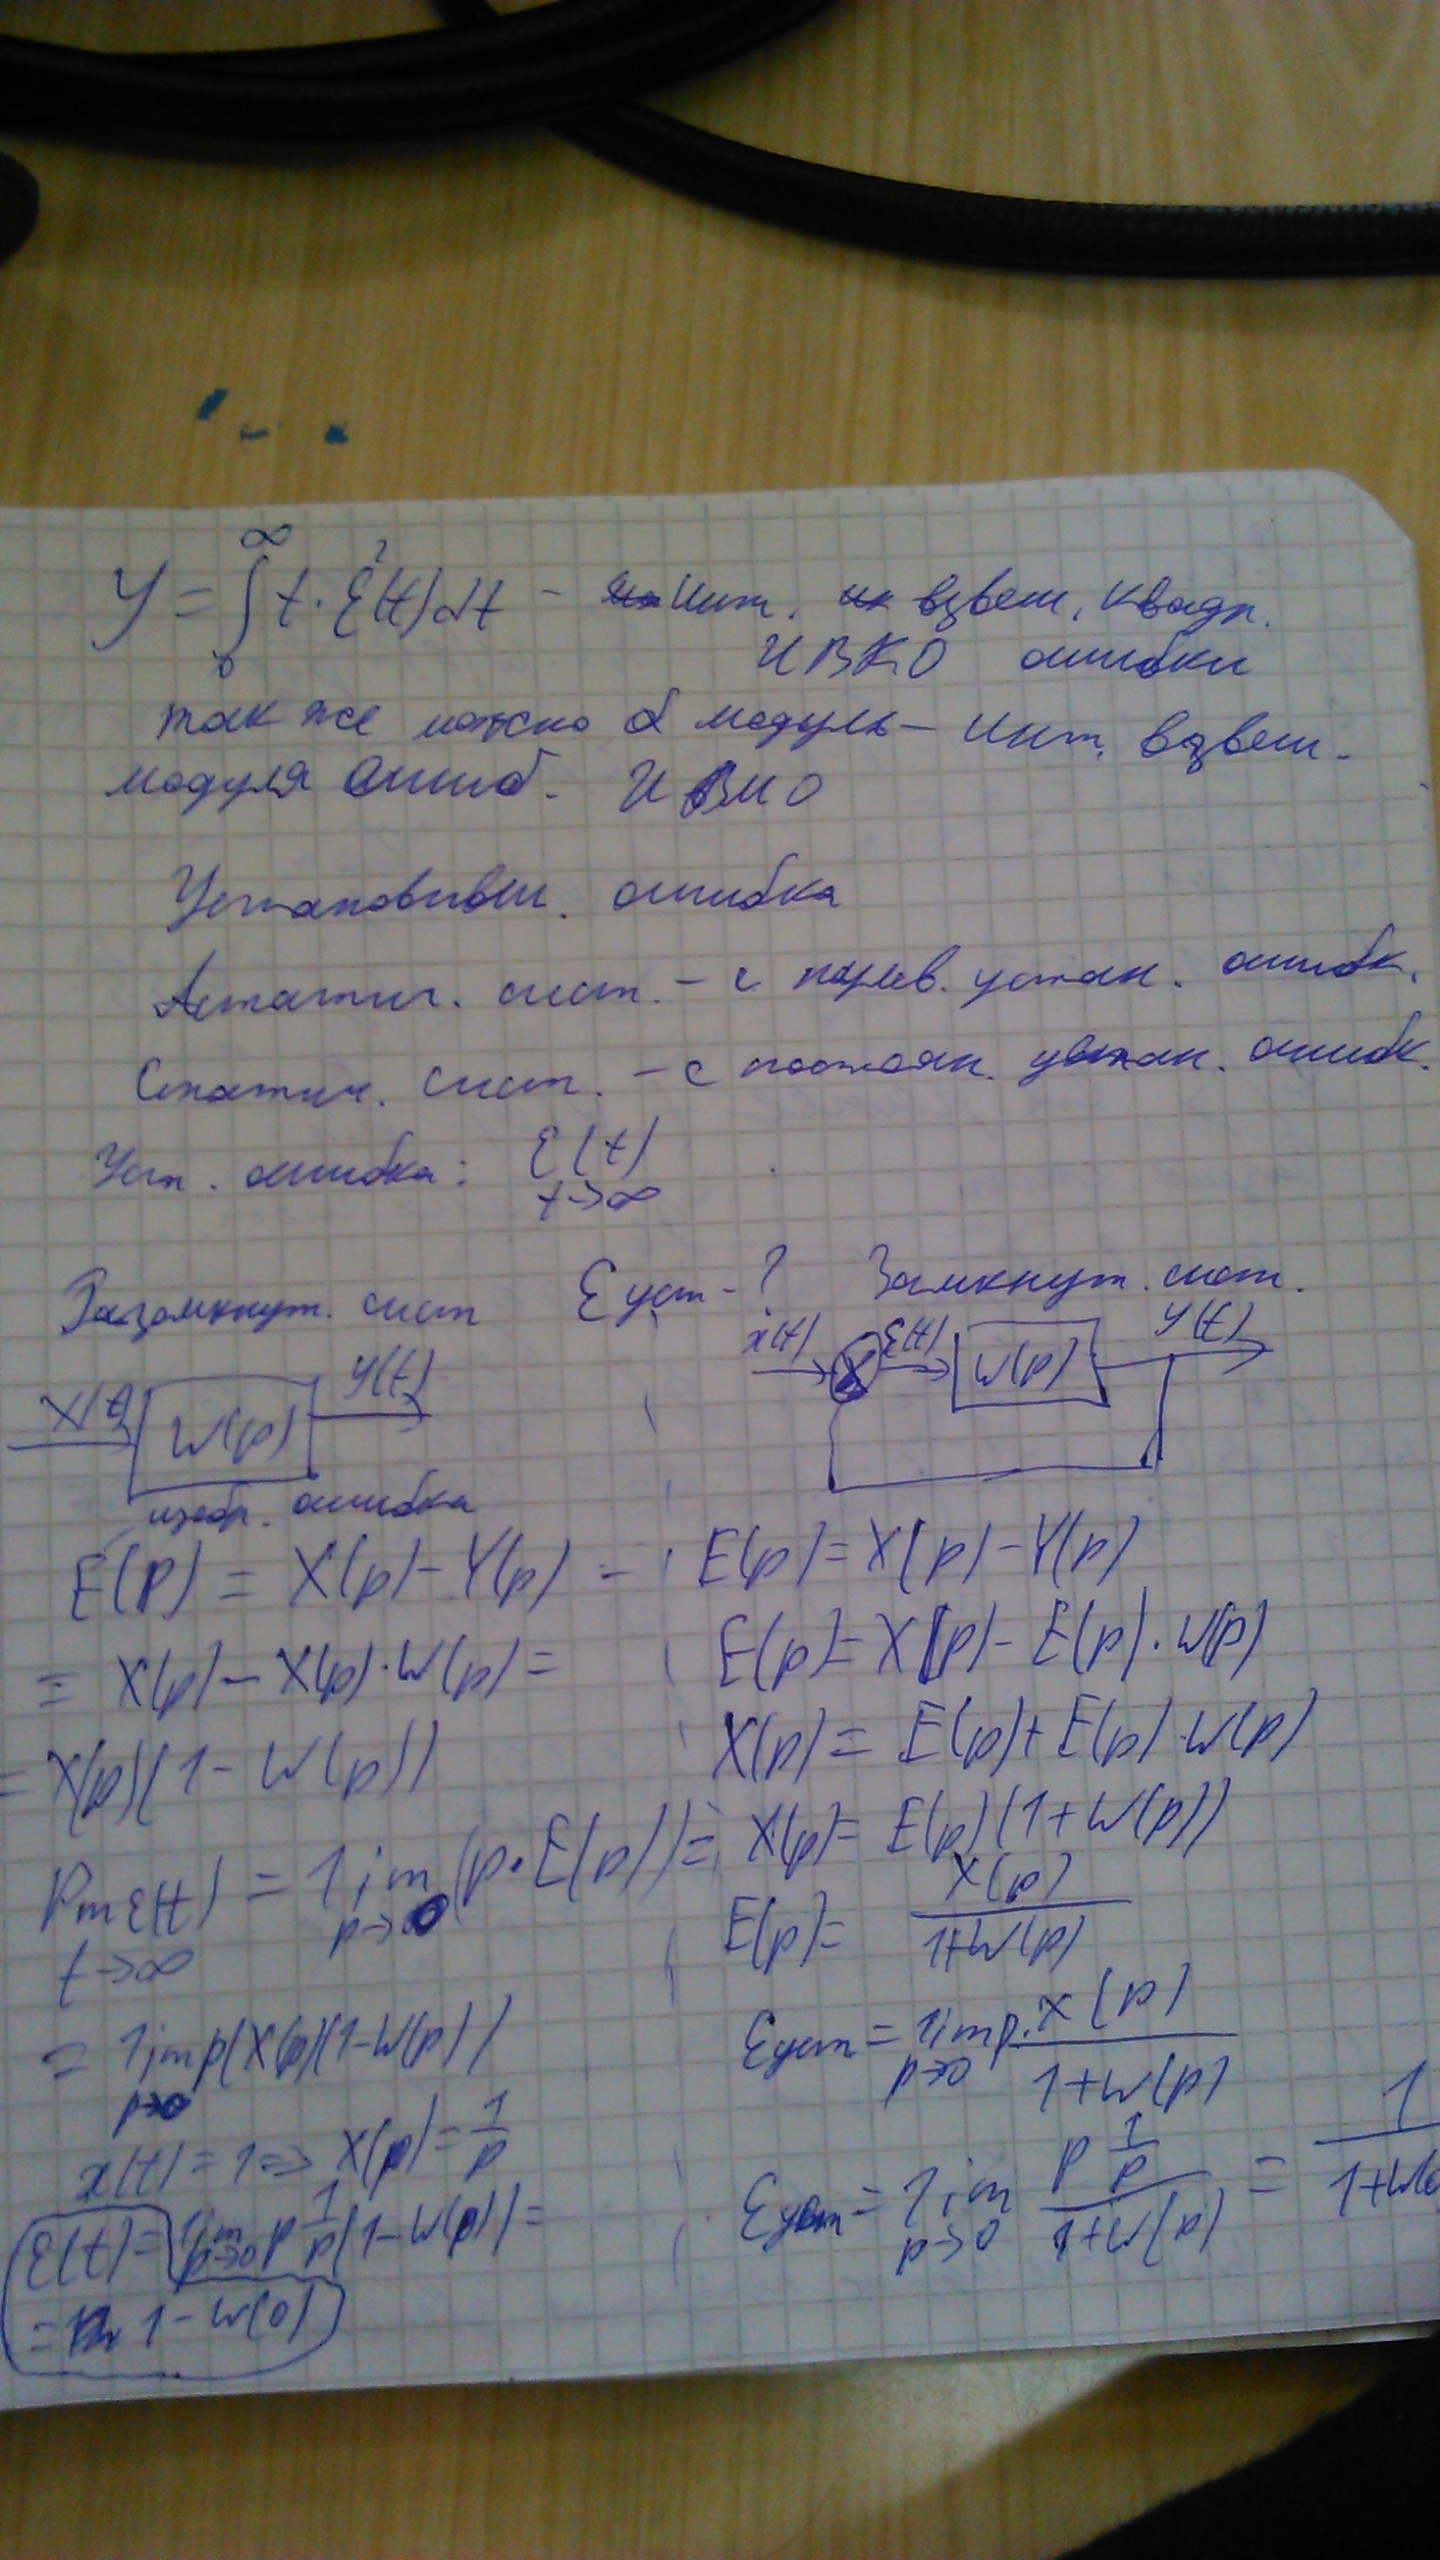 У = ∫₀^∞ t · ε²(t)dt – Инт. взвеш. квадр.
ИВКО ошибки
так же можно модуль – Инт. взвеш.
модуля ошиб. ИВМО
Установивш. ошибка
Астатич. сист. – с нулев. устан. ошибк.
Статич. сист. – с постоян. устан. ошибк.
Уст. ошибка: ε(t)
t→∞
εуст - ?
Разомкнут. сист
X(t) W(p) y(t)
изобр. ошибка
E(p) = X(p) – Y(p) =
= X(p) – X(p)·W(p) =
= X(p)(1 – W(p))
ε(t) = lim (p·E(p)) =
t→∞ p→0
= lim p(X(p)(1–W(p))
p→0
x(t) = 1 => X(p) = 1/p
ε(t) = lim p→0 p 1/p (1–W(p)) =
= 1 – W(0)
Замкнут. сист.
x(t) ε(t) W(p) y(t)
E(p) = X(p) – Y(p)
E(p) = X(p) – E(p)·W(p)
X(p) = E(p) + E(p)·W(p)
X(p) = E(p)(1+W(p))
E(p) = X(p) / 1+W(p)
εуст = lim p→0 p·X(p) / 1+W(p)
εуст = lim p→0 p 1/p / 1+W(p) = 1 / 1+W(0